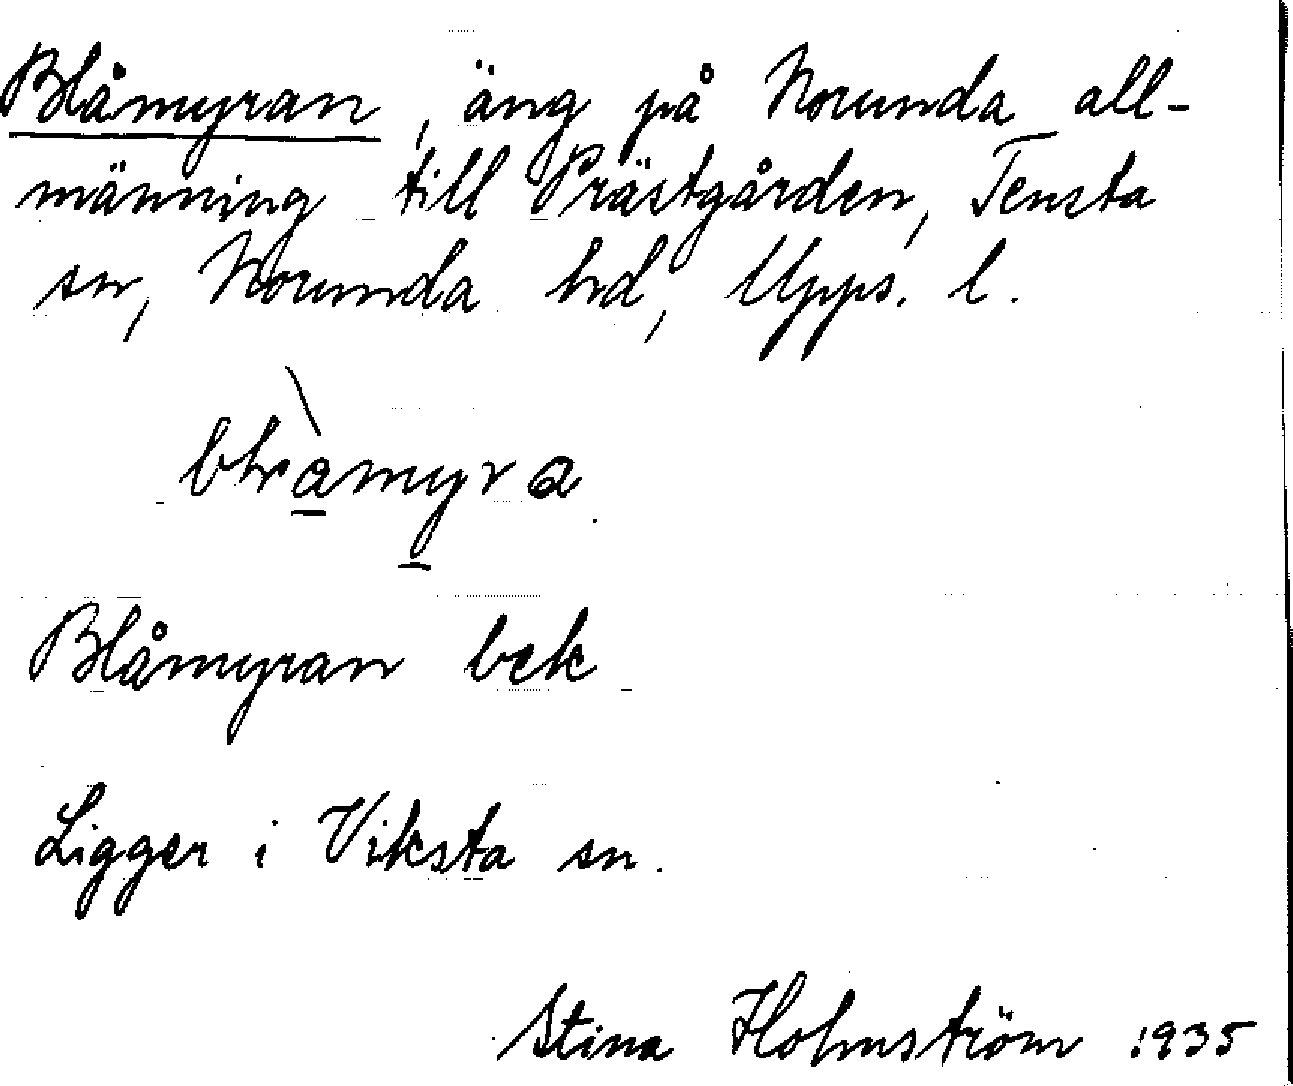 Blåmyran, äng på Norunda all-
männing till Prästgården, Tensta
sn, Norunda hd, Upps. l.
Blåmyran bek
Ligger i Viksta sn.
Stina Holmström 1935